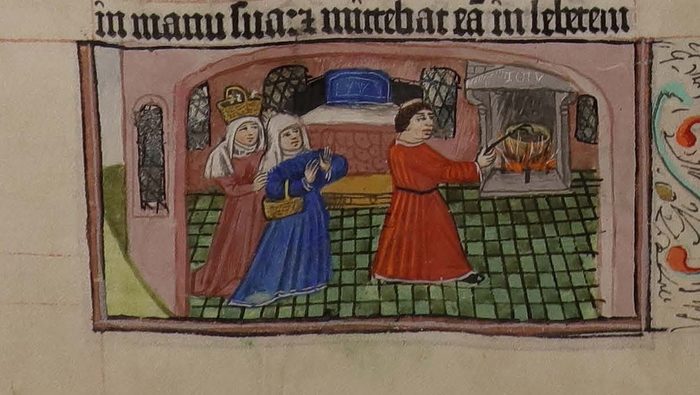 in manu sua: ⁊ mittebat eā in lebetem